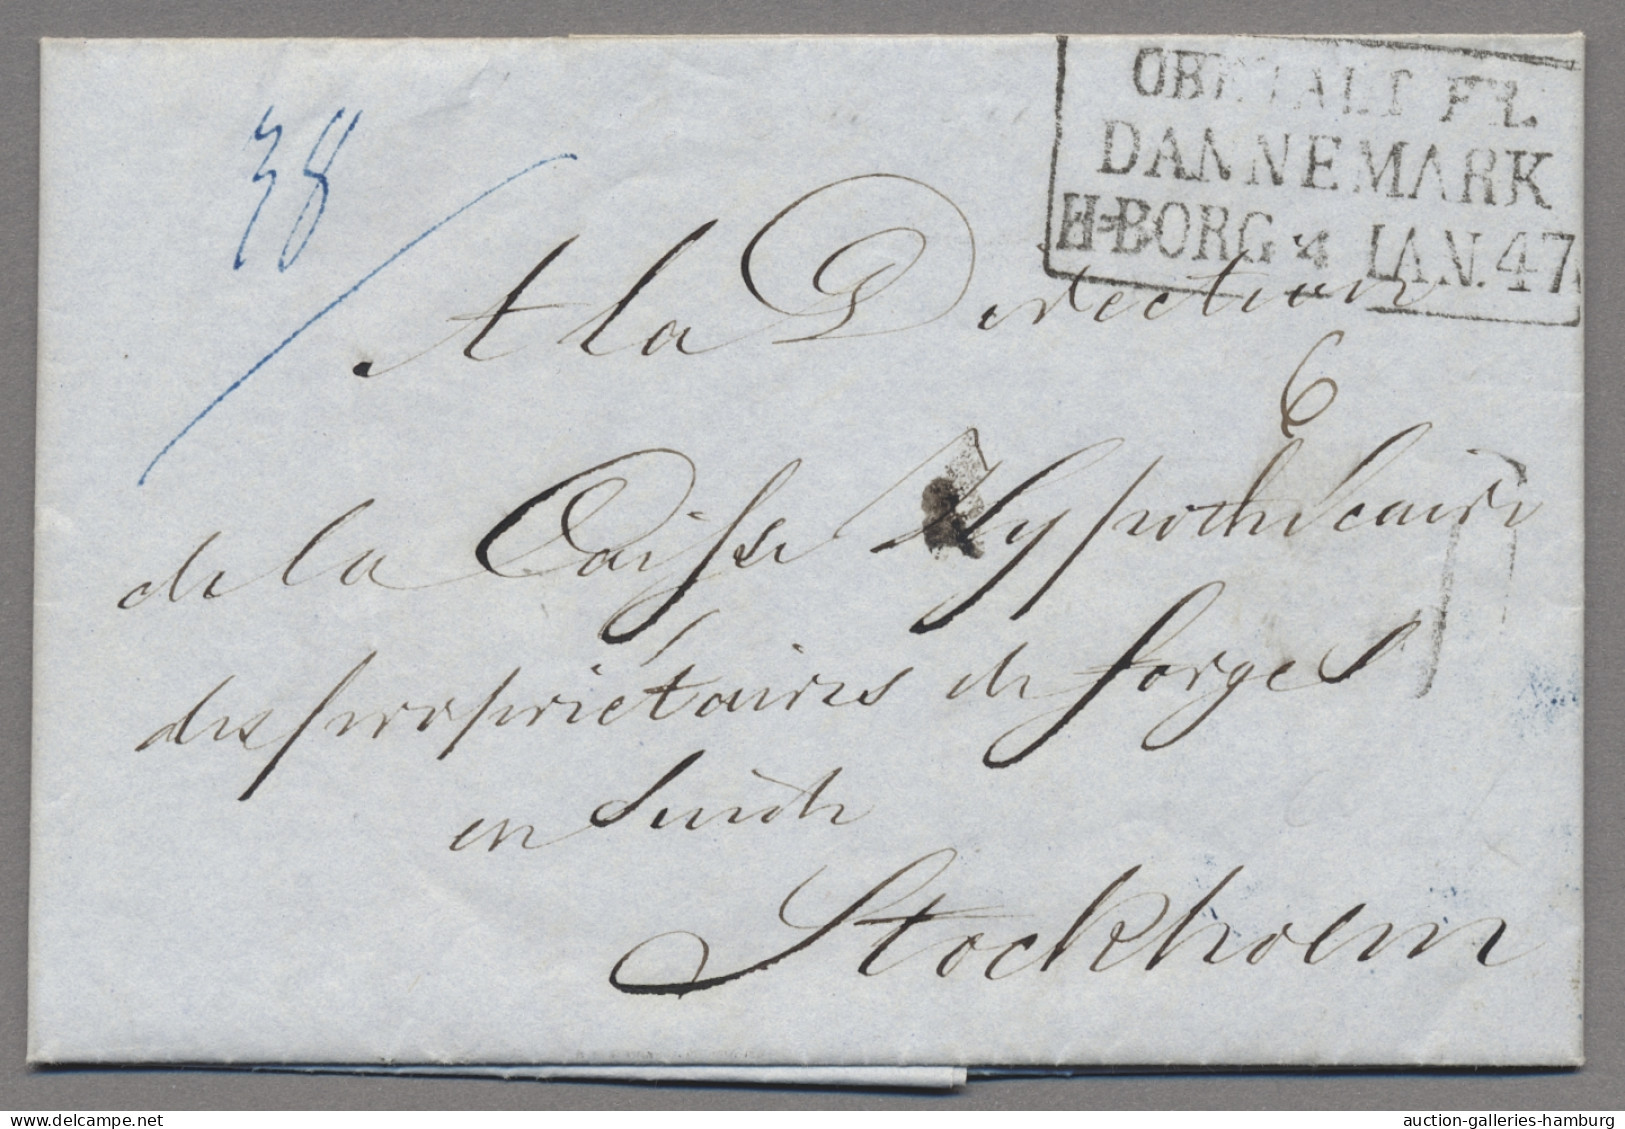 OBETALT FR.
DANNEMARK
H-BORG 4 JAN. 47
38
A la Direction
6
de la Caisse Hypothécaire
des propriétaires de forges
en Suède
Stockholm
delcampe.net
mistercheese
auction-galleries-hamburg